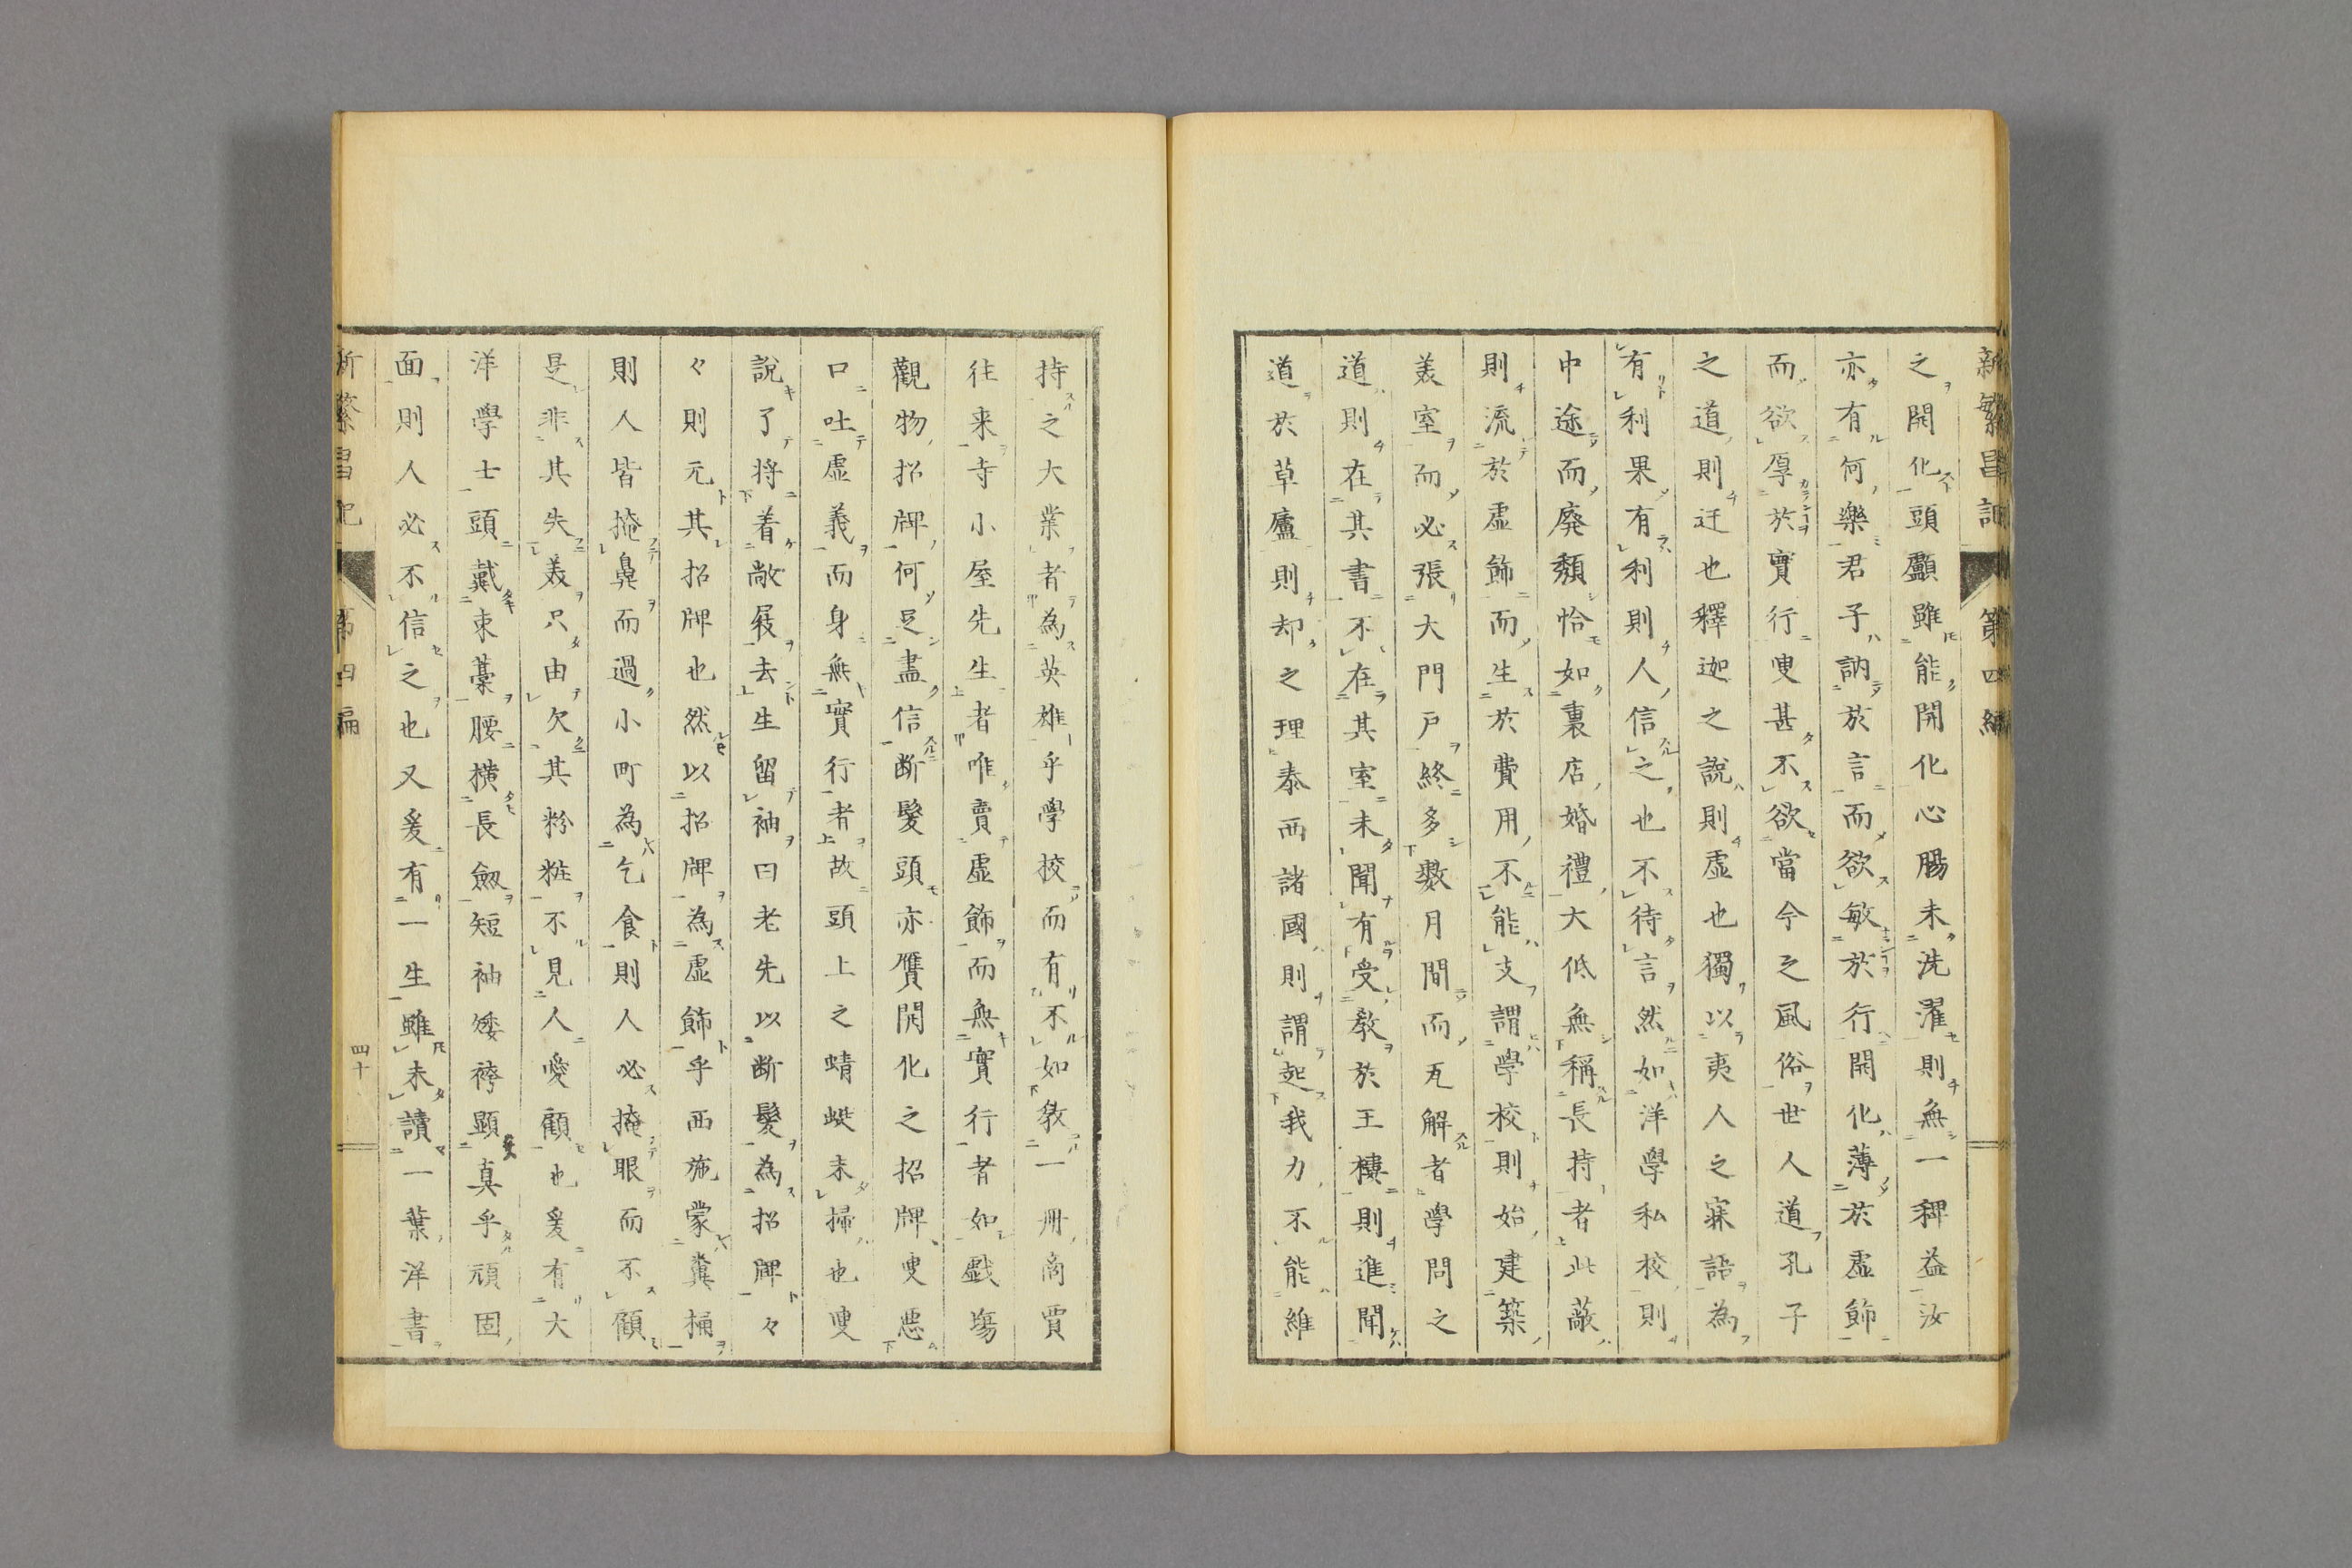 新繁昌記 第四編
之開化頭顱雖能開化心腸未洗濯則無一稗益汝
亦有何樂君子訥於言而欲敏於行開化薄於虛飾
而欲厚於實行叟甚不欲當今之風俗世人道孔子
之道則迂也釋迦之說則虛也獨以夷人之寐語為
有利果有利則人信之也不待言然如洋學私校則
中途而廢頽恰如裏店婚禮大低無稱長持者此蔽
則流於虛飾而生於費用不能支謂學校則始建築
美室而必張大門戶終多數月間而瓦解者學問之
道則在其書不在其室未聞有受教於王樓則進聞
道於草廬則却之理泰西諸國則謂起我力不能維
持之大業者為英雄乎學校而有不如教一冊商賈
往来寺小屋先生者唯賣虛飾而無實行者如戲塲
觀物招牌何足盡信断髮頭亦贋開化之招牌叟惡
口吐虛義而身無實行者故頭上之蜻蜓未掃也叟
說了将着敞屐去生留袖曰老先以断髮為招牌々
々則元其招牌也然以招牌為虛飾乎西施蒙糞桶
則人皆掩鼻而過小町為乞食則人必掩眼而不顧
是非其失美只由欠其粉粧不見人愛顧也爰有大
洋學士頭戴束藁腰横長劔短袖矮袴顕真乎頑固
面則人必不信之也又爰有一生雖未讀一葉洋書
新繁昌記 第四編 四十